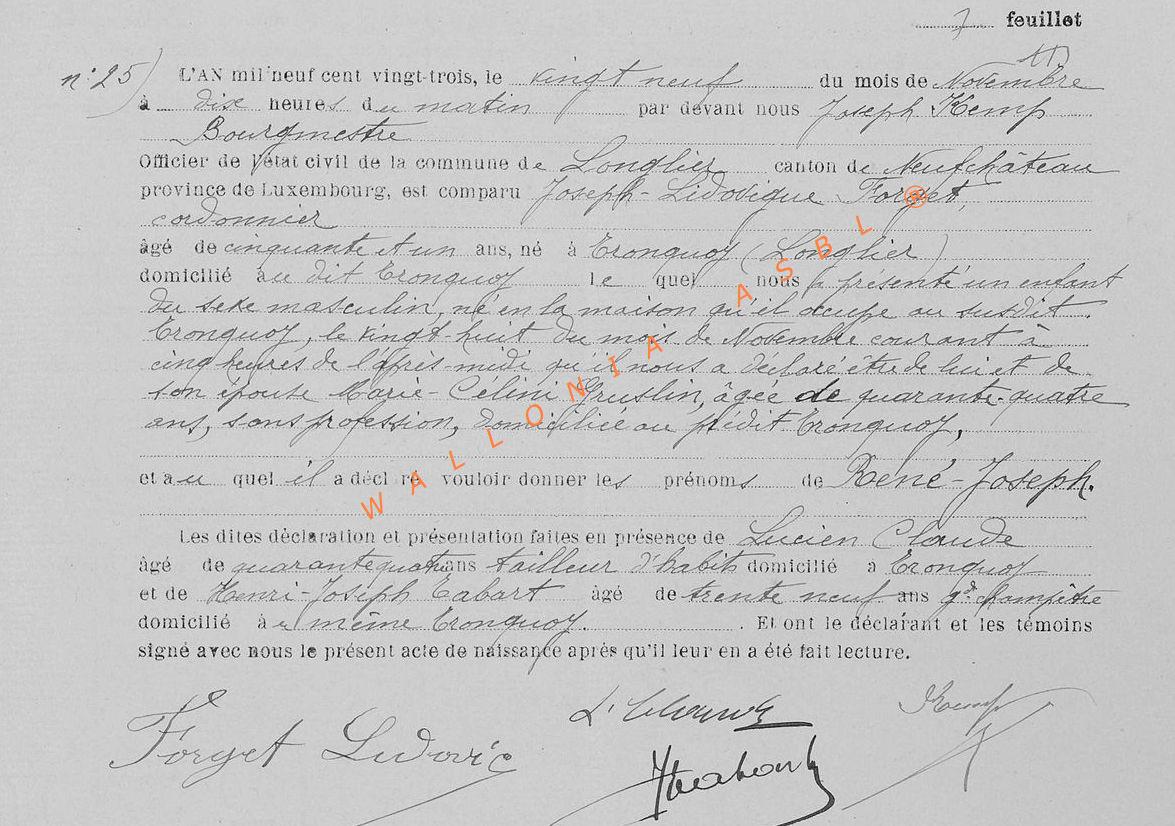 7 feuillet
n: 25)
L'AN mil neuf cent vingt-trois, le vingt neuf du mois de Novembre
à dix heures du matin par devant nous Joseph Kemp
Bourgmestre
Officier de l'état civil de la commune de Longlier canton de Neufchâteau
province de Luxembourg, est comparu Joseph-Lidovique Forget,
cordonnier
âgé de cinquante et un ans, né à Tronquoy (Longlier)
domicilié au dit Tronquoy le quel nous a présenté un enfant
du sexe masculin, né en la maison qu'il occupe au susdit
Tronquoy, le vingt-huit du mois de Novembre courant à
cinq heures de l'après-midi qu'il nous a déclaré être de lui et de
son épouse Marie-Célini Gruslin, âgée de quarante-quatre
ans, sans profession, domiciliée au prédit Tronquoy,
et au quel il a déclaré vouloir donner les prénoms de René-Joseph.
Les dites déclaration et présentation faites en présence de Lucien Claude
âgé de quarante quatre ans tailleur d'habits domicilié à Tronquoy
et de Henri-Joseph Tabart âgé de trente neuf ans gde champêtre
domicilié au même Tronquoy. Et ont le déclarant et les témoins
signé avec nous le présent acte de naissance après qu'il leur en a été fait lecture.
Forget Ludovic
JKemp
WALLONIA ASBL ®